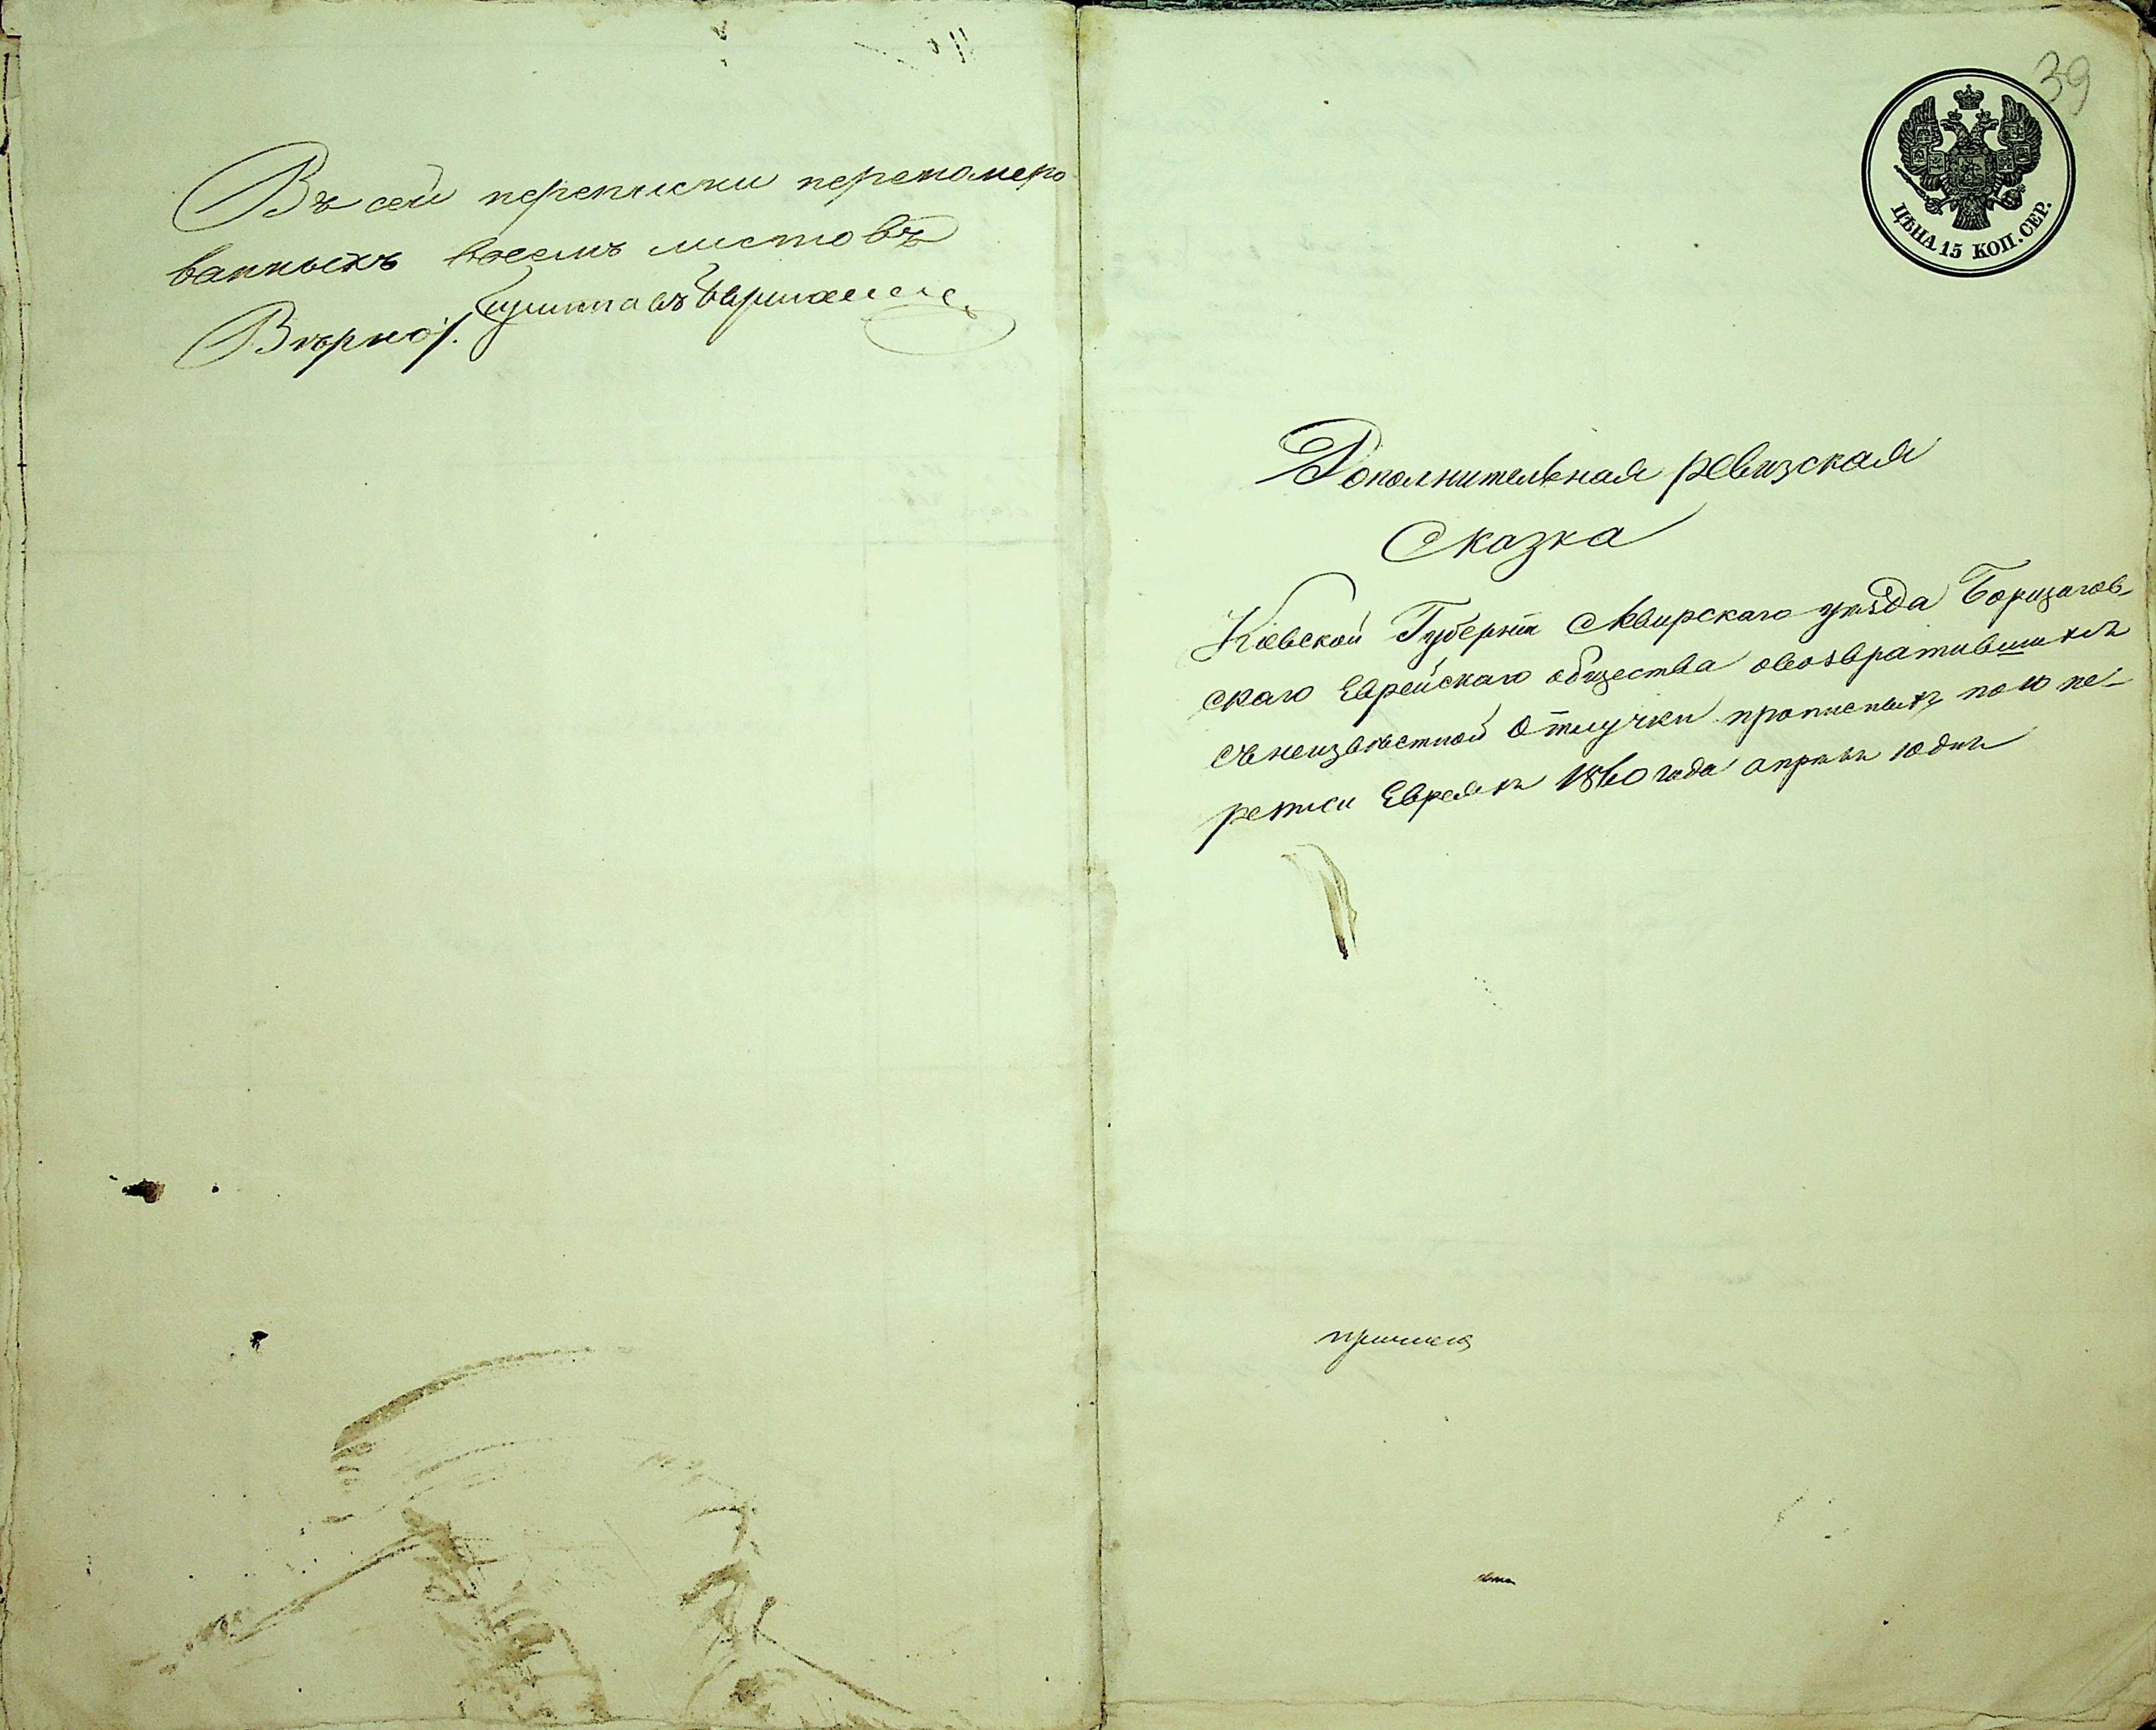 Въ сей переписки перенумеро
ванныхъ восемъ листовъ
Вѣрно
39
ЦѢНА 15 КОП. СЕР.
Дополнительная ревизская
Сказка
Кіевской Губерніи Сквирскаго уѣзда Борщагов-
скаго Еврейскаго общества овозвратившихся
съ неизвѣстной отлучки прописныхъ по 10 пе-
реписи Евреяхъ 1860 года апрѣля 10 дня